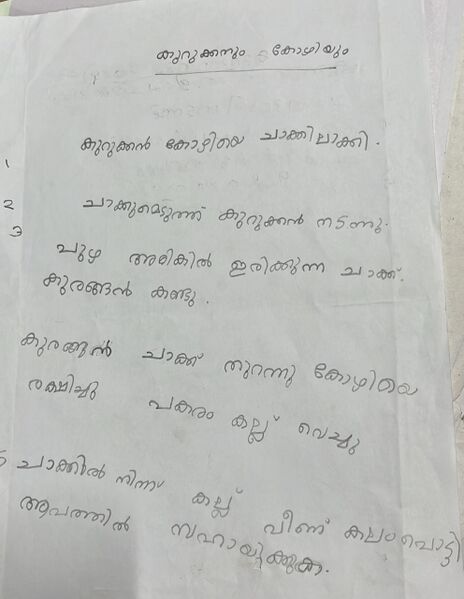 കുറുക്കനും കോഴിയും
1 കുറുക്കൻ കോഴിയെ ചാക്കിലാക്കി.
2 ചാക്കുമെടുത്ത് കുറുക്കൻ നടന്നു.
3 പുഴ അരികിൽ ഇരിക്കുന്ന ചാക്ക്.
കുരങ്ങൻ കണ്ടു.
കുരങ്ങൻ ചാക്ക് തുറന്നു കോഴിയെ
രക്ഷിച്ചു പകരം കല്ല് വെച്ചു
5 ചാക്കിൽ നിന്ന് കല്ല് വീണ് കലംപൊട്ടി
ആപത്തിൽ സഹായിക്കുക.